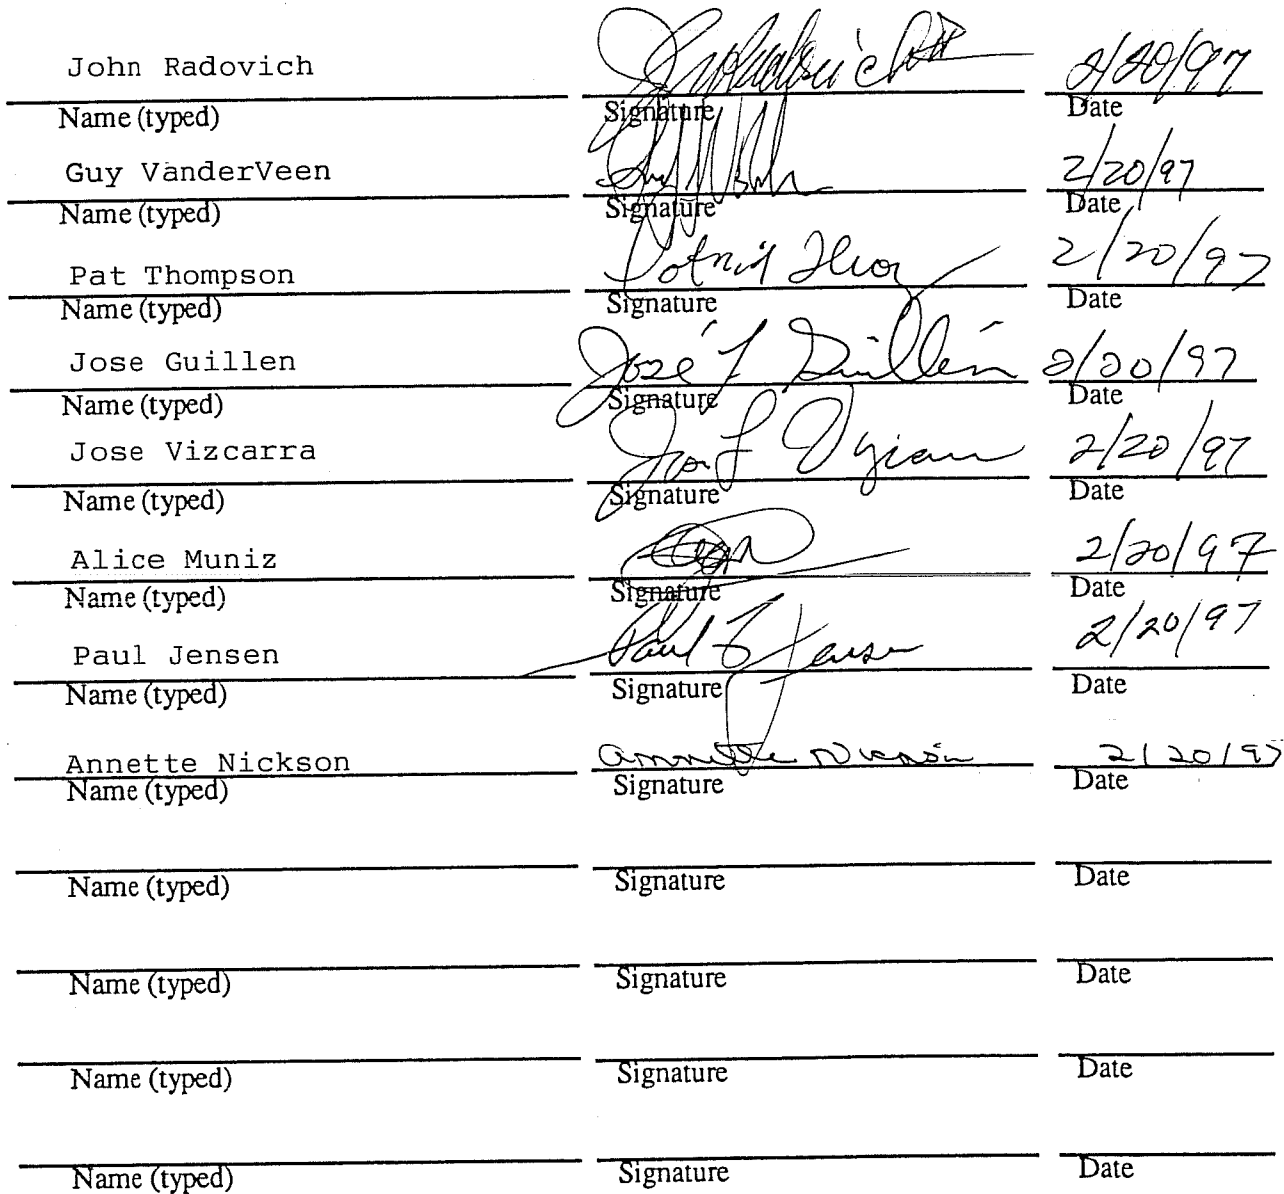 John Radovich 2/20/97
Name (typed) Signature Date
Guy VanderVeen 2/20/97
Name (typed) Signature Date
Pat Thompson 2/20/97
Name (typed) Signature Date
Jose Guillen José L Guillén 2/20/97
Name (typed) Signature Date
Jose Vizcarra 2/20/97
Name (typed) Signature Date
Alice Muniz 2/20/97
Name (typed) Signature Date
Paul Jensen Paul Jensen 2/20/97
Name (typed) Signature Date
Annette Nickson Annette Nickson 2/20/97
Name (typed) Signature Date
Name (typed) Signature Date
Name (typed) Signature Date
Name (typed) Signature Date
Name (typed) Signature Date